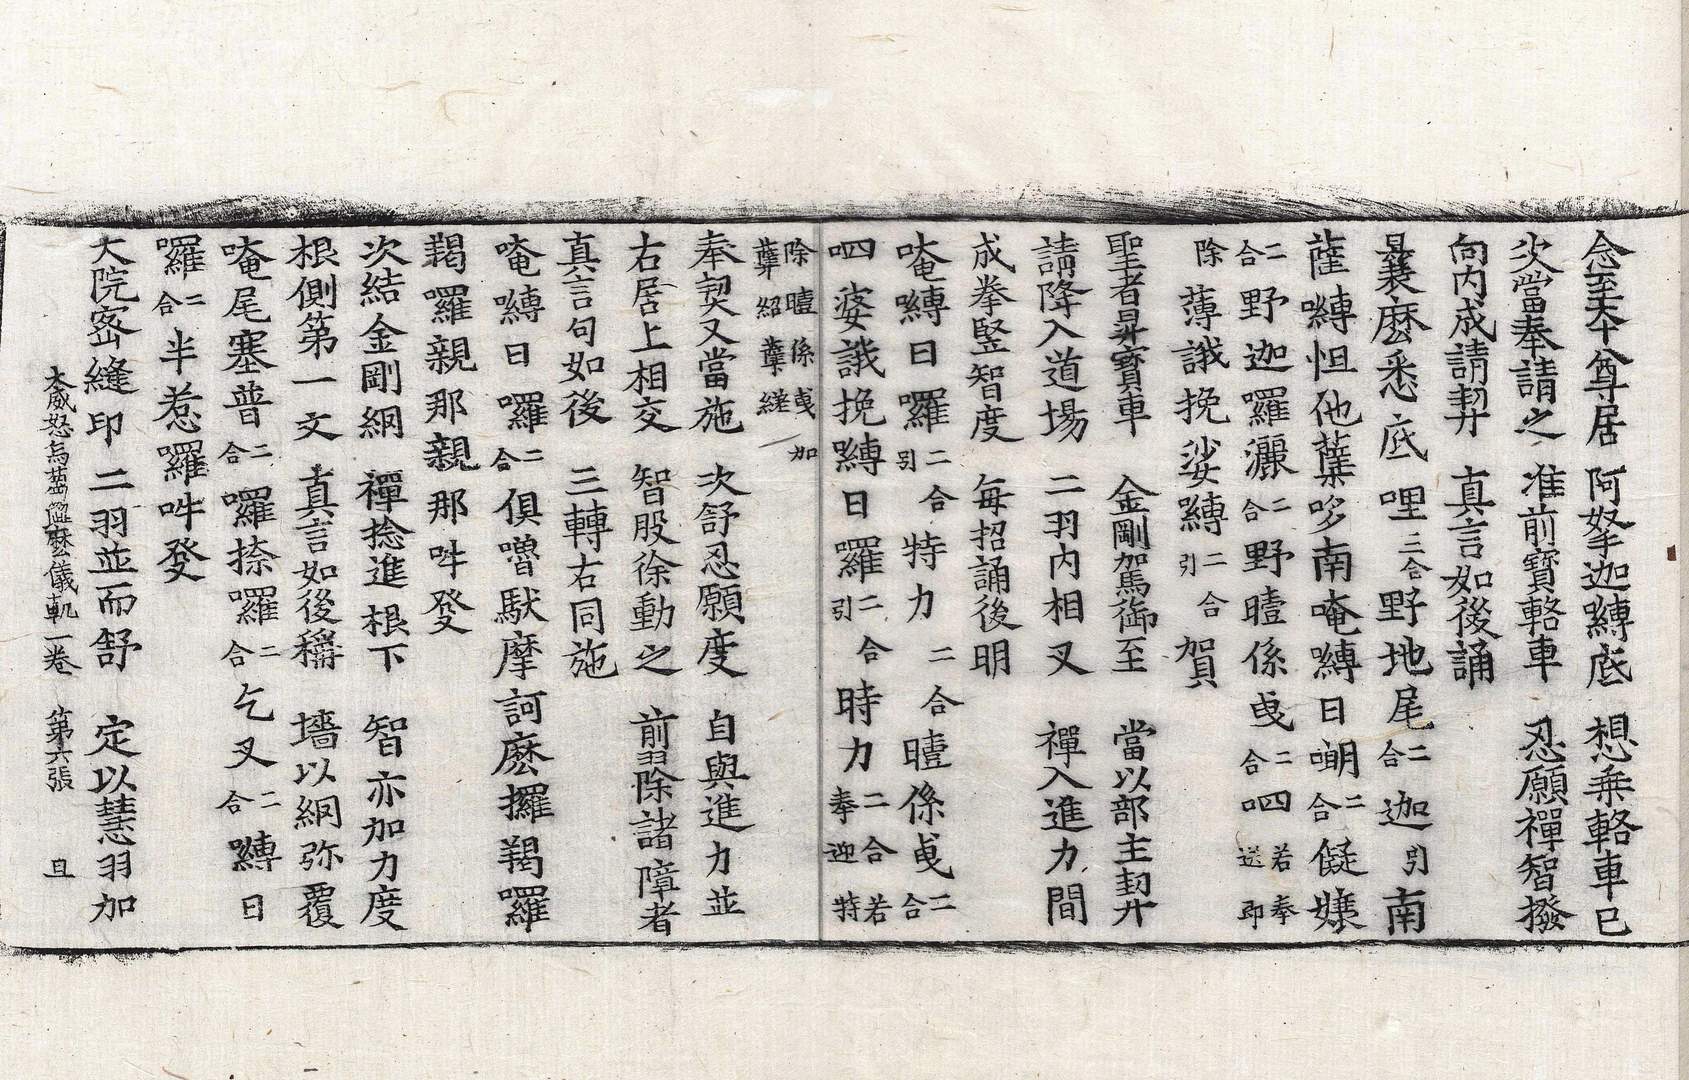 念至天中尊居　阿拏迦嚩底　想乘輅車已
次當奉請之　准前寶輅車　忍願禪智撥
向内成請契　真言如後誦
曩麼悉底哩三合野地尾二合迦引南
薩嚩怛他蘖哆南唵嚩日囉二合儗孃
二合野迦囉灑二合野曀係曳二合呬若奉送即
除薄誐挽娑嚩二合引賀
聖者昇寶車　金剛駕御至　當以部主契
請降入道場　二羽内相叉　禪入進力間
成拳竪智度　每招誦後明
唵嚩日囉二合引特力二合曀係曳二合
呬婆誐挽嚩日囉二合引時力二合若奉迎特
除曀係曳加
蘖紹蘖縒
奉契又當施　次舒忍願度　自與進力並
右居上相交　智股徐動之　前羽除諸障者
真言句如後　三轉右同施
唵嚩日囉二合俱嚕馱摩訶麼攞羯囉
羯囉親那親那吽發
次結金剛網　禪捻進根下　智亦加力度
根側第一文　真言如後稱　墻以網弥覆
唵尾塞普二合囉捺囉二合乞叉二合嚩日
囉二合半惹囉吽發
大院密縫印　二羽並而舒　定以慧羽加
大威怒烏蒭澁麼儀軌一卷　第六張　旦